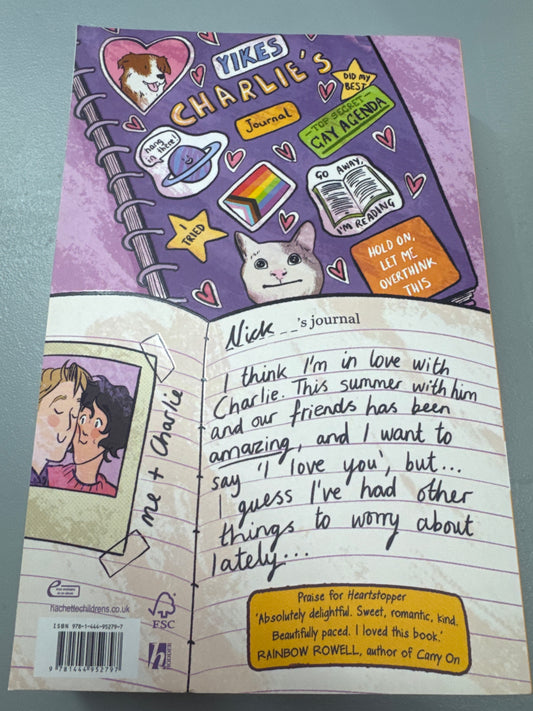 YIKES
CHARLIE'S
Journal
DID MY
BEST
TOP SECRET
GAY AGENDA
hang
in there!
GO AWAY,
I'M READING
I
TRIED
HOLD ON,
LET ME
OVERTHINK
THIS
Nick's journal
I think I'm in love with
Charlie. This summer with him
and our friends has been
amazing, and I want to
say 'I love you', but...
I guess I've had other
things to worry about
lately...
me + Charlie
hachettechildrens.co.uk
FSC
ISBN 978-1-444-95279-7
9 781444 952797
h
HODDER
Praise for Heartstopper
'Absolutely delightful. Sweet, romantic, kind.
Beautifully paced. I loved this book.'
RAINBOW ROWELL, author of Carry On